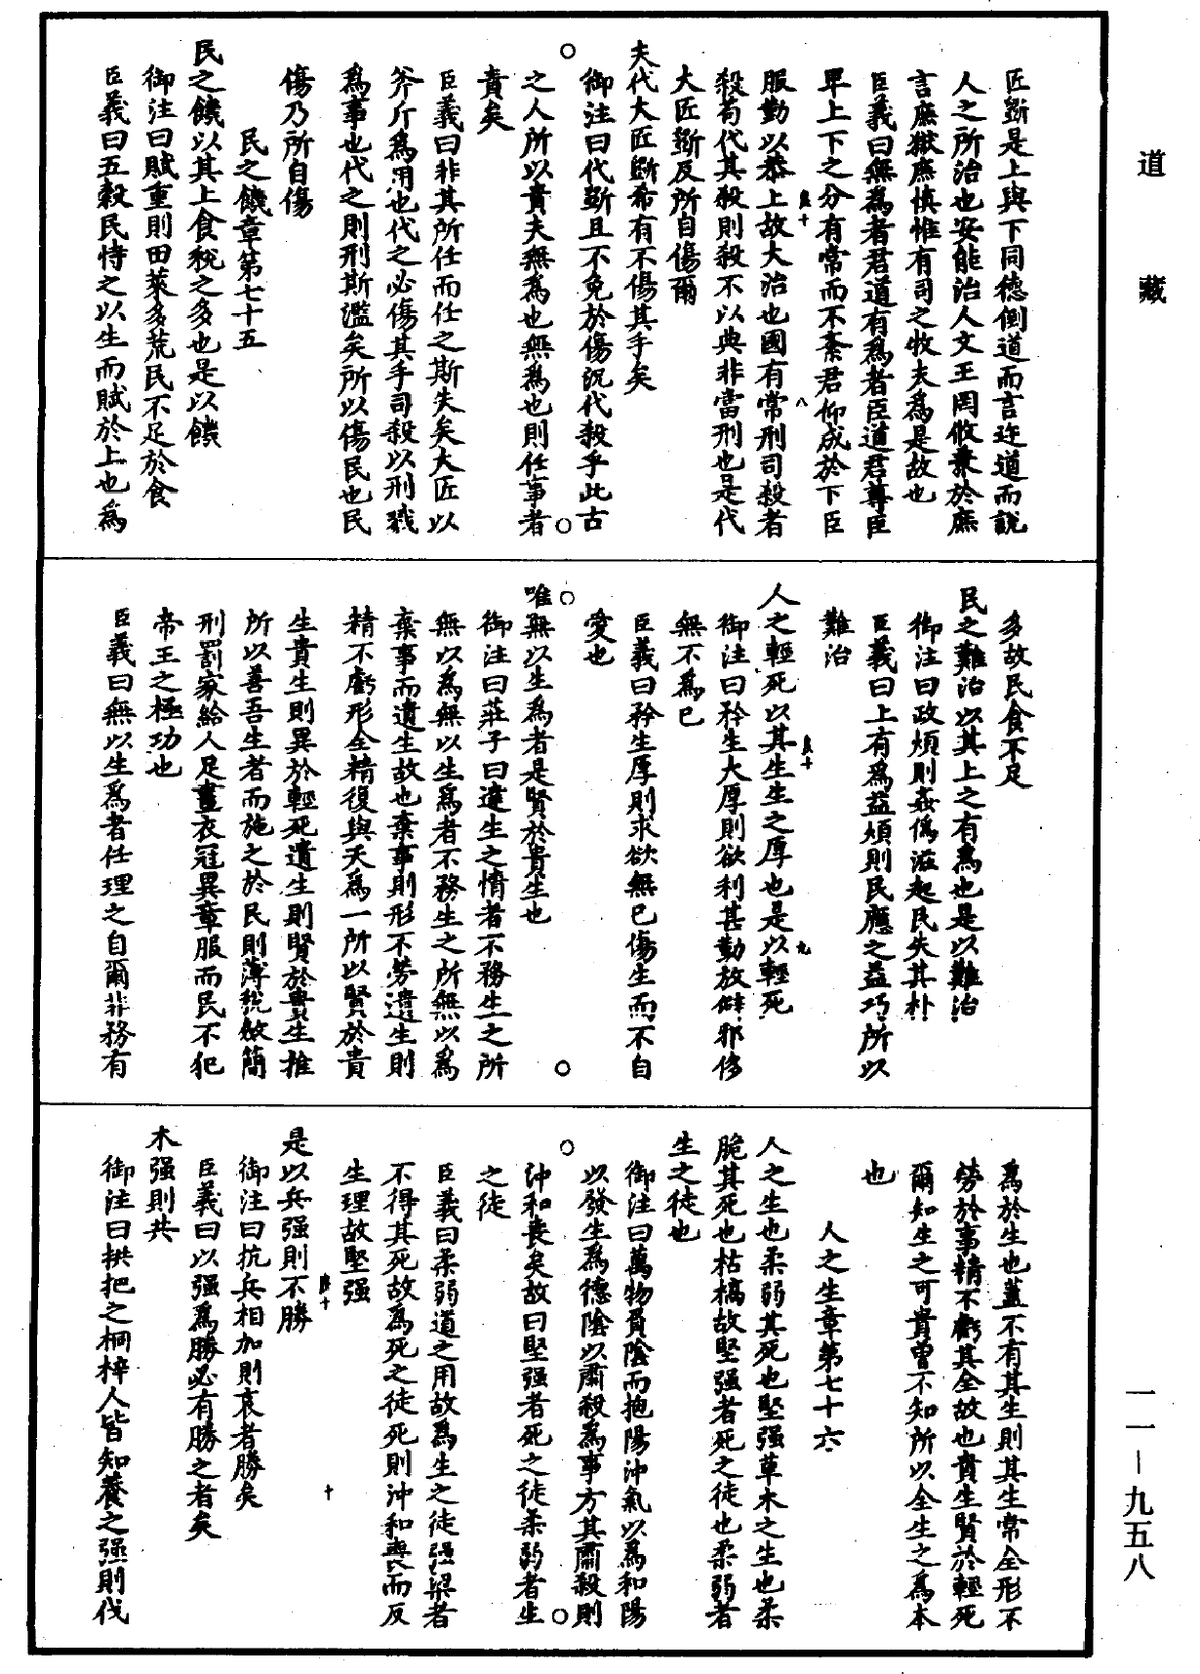 道藏
一一—九五八
匠斲是上與下同德倒道而言迕道而說
人之所治也安能治人文王罔攸兼於庶
言庶獄庶慎惟有司之牧夫為是故也
臣義曰無為者君道有為者臣道君尊臣
卑上下之分有常而不紊君仰成於下臣
服勤以恭上故大治也國有常刑司殺者
殺苟代其殺則殺不以典非當刑也是代
大匠斲反所自傷爾
夫代大匠斲希有不傷其手矣
御注曰代斲且不免於傷況代殺乎此古
之人所以貴夫無為也無為也則任事者
責矣
臣義曰非其所任而任之斯失矣大匠以
斧斤為用也代之必傷其手司殺以刑戮
為事也代之則刑斯濫矣所以傷民也民
傷乃所自傷
民之饑章第七十五
民之饑以其上食稅之多也是以饑
御注曰賦重則田萊多荒民不足於食
臣義曰五穀民恃之以生而賦於上也為
多故民食不足
民之難治以其上之有為也是以難治
御注曰政煩則姦偽滋起民失其朴
臣義曰上有為益煩則民應之益巧所以
難治
人之輕死以其生生之厚也是以輕死
御注曰矜生大厚則欲利甚勤放僻邪侈
無不為已
臣義曰矜生厚則求欲無已傷生而不自
愛也
唯無以生為者是賢於貴生也
御注曰莊子曰達生之情者不務生之所
無以為無以生為者不務生之所無以為
棄事而遺生故也棄事則形不勞遺生則
精不虧形全精復與天為一所以賢於貴
生貴生則異於輕死遺生則賢於貴生推
所以善吾生者而施之於民則薄稅斂簡
刑罰家給人足畫衣冠異章服而民不犯
帝王之極功也
臣義曰無以生為者任理之自爾非務有
為於生也蓋不有其生則其生常全形不
勞於事精不虧其全故也貴生賢於輕死
爾知生之可貴曾不知所以全生之為本
也
人之生章第七十六
人之生也柔弱其死也堅强草木之生也柔
脆其死也枯槁故堅强者死之徒也柔弱者
生之徒也
御注曰萬物負陰而抱陽沖氣以為和陽
以發生為德陰以肅殺為事方其肅殺則
沖和喪矣故曰堅强者死之徒柔弱者生
之徒
臣義曰柔弱道之用故為生之徒强梁者
不得其死故為死之徒死則沖和喪而反
生理故堅强
是以兵强則不勝
御注曰抗兵相加則哀者勝矣
臣義曰以强為勝必有勝之者矣
木强則共
御注曰拱把之桐梓人皆知養之强則伐